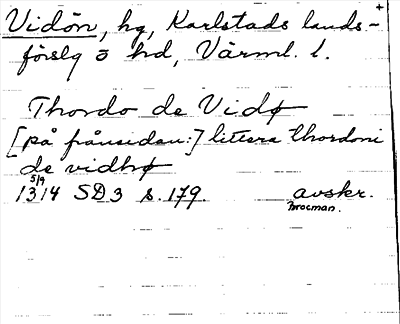 Vidön, hg, Karlstads lands-
förslg o hd, Värml. l.
Thordo de Vidø
[på frånsidan:] littera thordoni
de vidhø
5/9
1314 SD 3 s. 179. avskr.
Brocman.